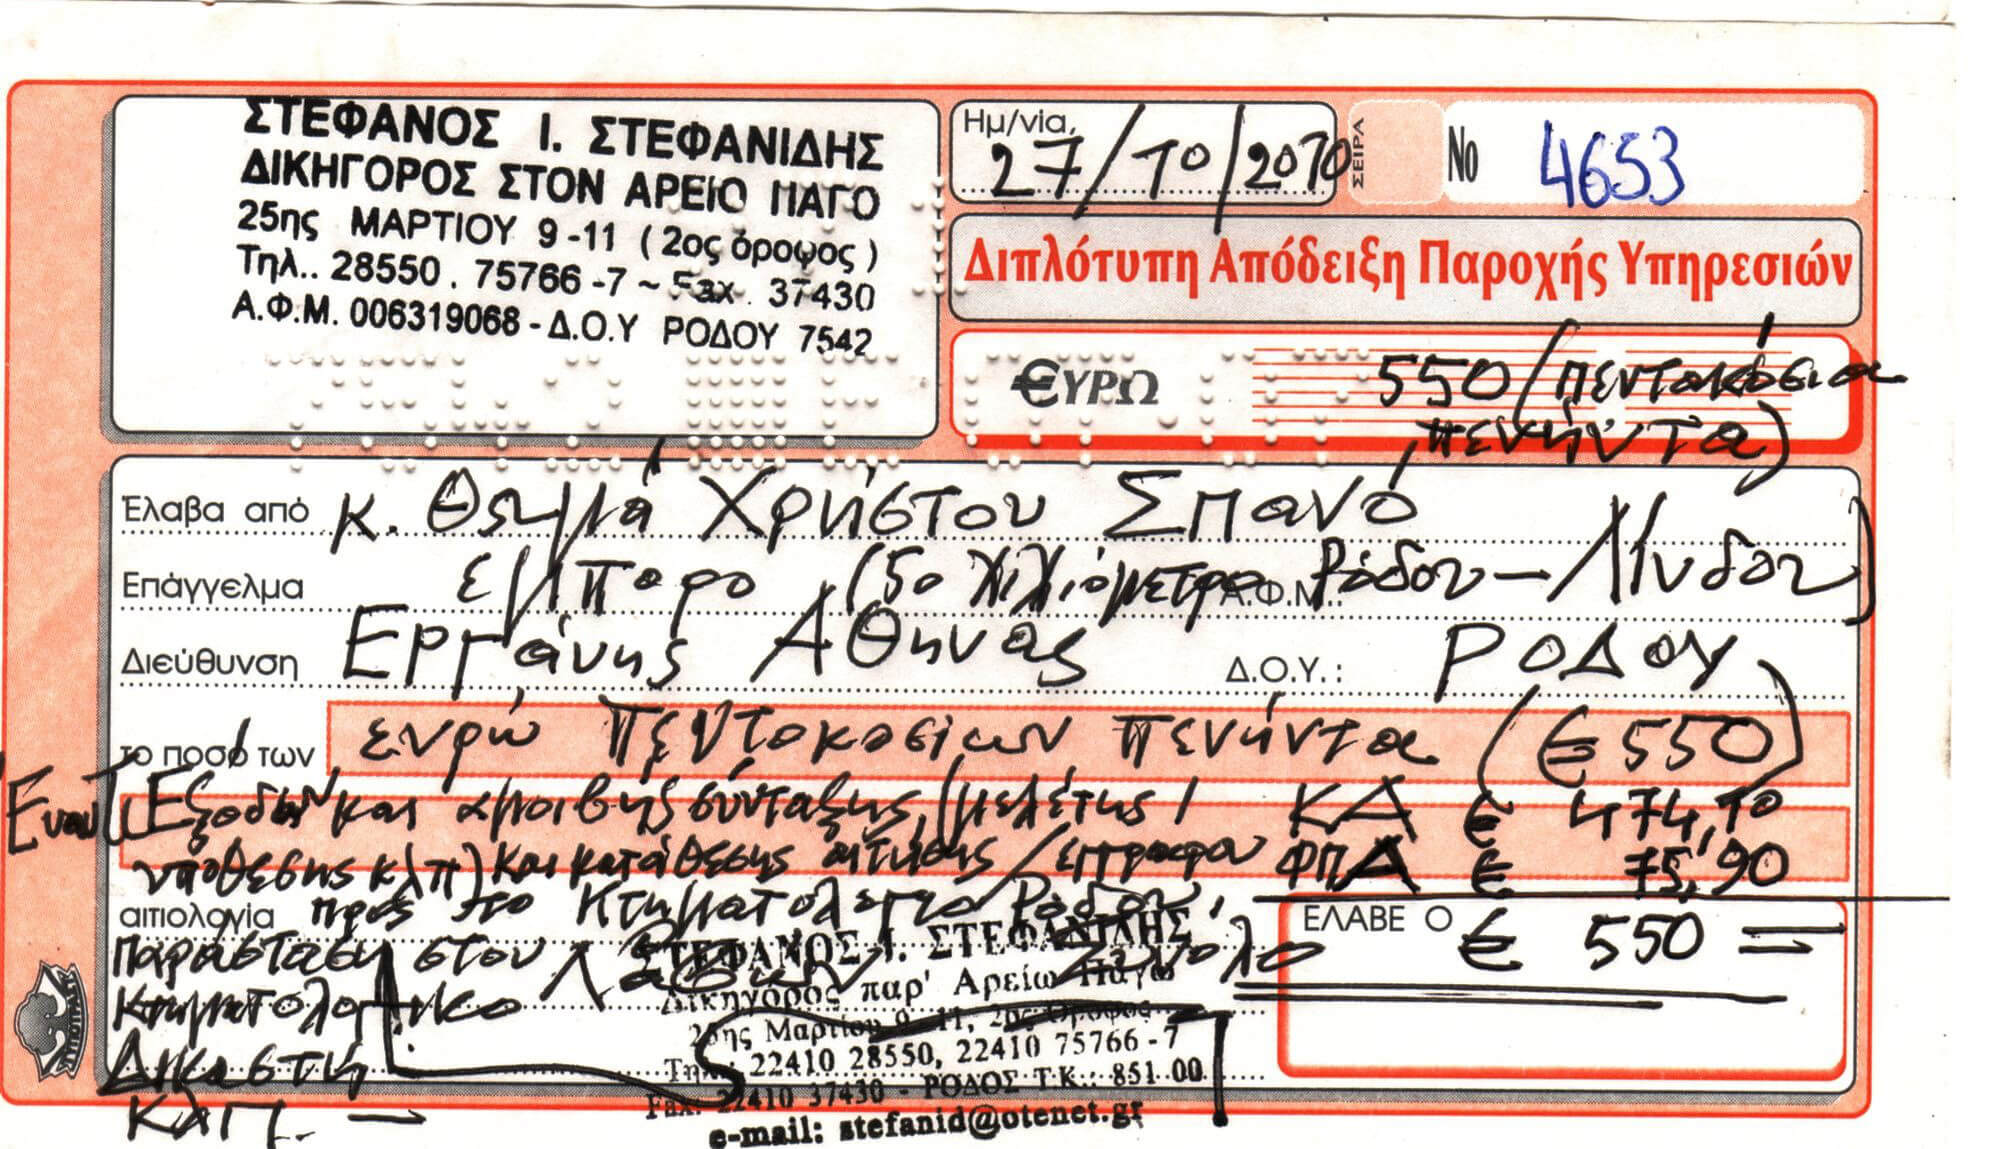 ΣΤΕΦΑΝΟΣ Ι. ΣΤΕΦΑΝΙΔΗΣ
ΔΙΚΗΓΟΡΟΣ ΣΤΟΝ ΑΡΕΙΟ ΠΑΓΟ
25ης ΜΑΡΤΙΟΥ 9-11 (2ος όροφος)
Τηλ.. 28550. 75766-7 ~ Fax. 37430
Α.Φ.Μ. 006319068 - Δ.Ο.Υ ΡΟΔΟΥ 7542
Ημ/νία, 27/10/2010
ΣΕΙΡΑ
Νο 4653
Διπλότυπη Απόδειξη Παροχής Υπηρεσιών
€ΥΡΩ 550 (πεντακόσια
πενήντα)
Έλαβα από κ. Θωμά Χρήστου Σπανό
Επάγγελμα έμπορο (5ο χιλιόμετρο Ρόδου - Λίνδου)
Α.Φ.Μ.:
Διεύθυνση Εργάνης Αθηνάς Δ.Ο.Υ.: ΡΟΔΟΥ
το ποσό των ευρώ πεντακοσίων πενήντα (€ 550)
Έναντι Εξόδων και αμοιβής σύνταξης, (μελέτης ΚΑ € 474,10
υποθέσης κλπ) και κατάθεσης αίτησης/εγγράφου ΦΠΑ € 75,90
αιτιολογία προς το Κτηματολόγιο Ρόδου,
ΕΛΑΒΕ Ο
Σύνολο € 550 =
παράσταση στον
Κτηματολογικό
Δικαστή
κλπ. -
ΣΤΕΦΑΝΟΣ Ι. ΣΤΕΦΑΝΙΔΗΣ
Δικηγόρος παρ' Αρείω Πάγω
25ης Μαρτίου 9-11, 2ος Όροφος
Τηλ.: 22410 28550, 22410 75766-7
Fax: 22410 37430 - ΡΟΔΟΣ Τ.Κ.: 851 00
e-mail: stefanid@otenet.gr